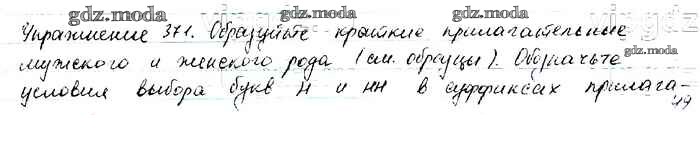 gdz.moda gdz.moda gdz.moda
Упражнение 371. Образуйте краткие прилагательные
мужского и женского рода (см. образцы). Обозначьте
условия выбора букв н и нн в суффиксах прилага-
gdz.moda gdz.moda gdz.moda
49